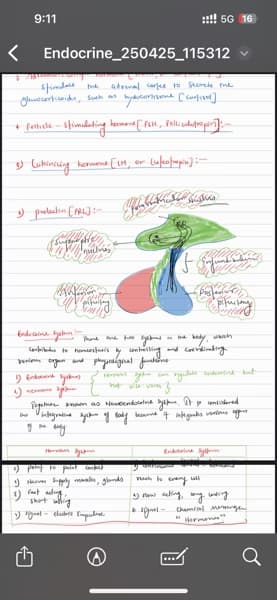 9:11
5G 16
Endocrine_250425_115312
stimulate the adrenal cortex to secrete the
glucocorticoids, such as hydrocortisone [cortisol]
4 Follicle - stimulating hormone [FSH, Follicotropin] :-
5) Luteinising hormone [LH, or Luteotropin] :-
6) prolactin [PRL] :-
Paraventricular nucleus
Supraoptic
nucleus
Infundibulum
Anterior
pituitary
Posterior
pituitary
Endocrine System :- There are two system in the body, which
contributes to homeostasis by controlling and coordinating
various organ and physiological functions
1) Endocrine System
2) nervous System
nervous system can regulate endocrine but
not vice versa
Together known as Neuroendocrine System, it is considered
as integrative system of body because it integrates various organ
of the body
Nervous System
Endocrine System
1) point to point contact
2) Nerves supply muscles, glands
Reach to every cell
3) Fast acting,
short lasting
3) slow acting, long lasting
4) signal - electric Impulse
4. signal - chemical messenger
"Hormones"